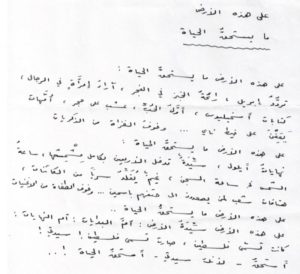 على هذه الأرض
ما يستحقّ الحياة
على هذه الأرض ما يستحقّ الحياة :
تردّد إبريل ، رائحة الخبز في الفجر ، آراء امرأة في الرجال ،
كتابات أسخيليوس ، أوّل الحبّ ، عشب على حجر ، أمّهات
يقفن على خيط ناي ... وخوف الغزاة من الذكريات
على هذه الأرض ما يستحقّ الحياة :
نهايات أيلول ، سيّدة تدخل الأربعين بكامل مشمشها ، ساعة
الشمس في السجن ، غيم يقلّد سرباً من الكائنات ،
هتافات شعب لمن يصعدون إلى حتفهم باسمين ... وخوف الطغاة من الأغنيات
على هذه الأرض ما يستحقّ الحياة :
على هذه الأرض سيّدة الأرض : أمّ البدايات : أمّ النهايات :
كانت تسمى فلسطين ، صارت تسمى فلسطين ! سيدتي !
أستحقّ - لأنك سيدتي - أستحقّ الحياة ! ...